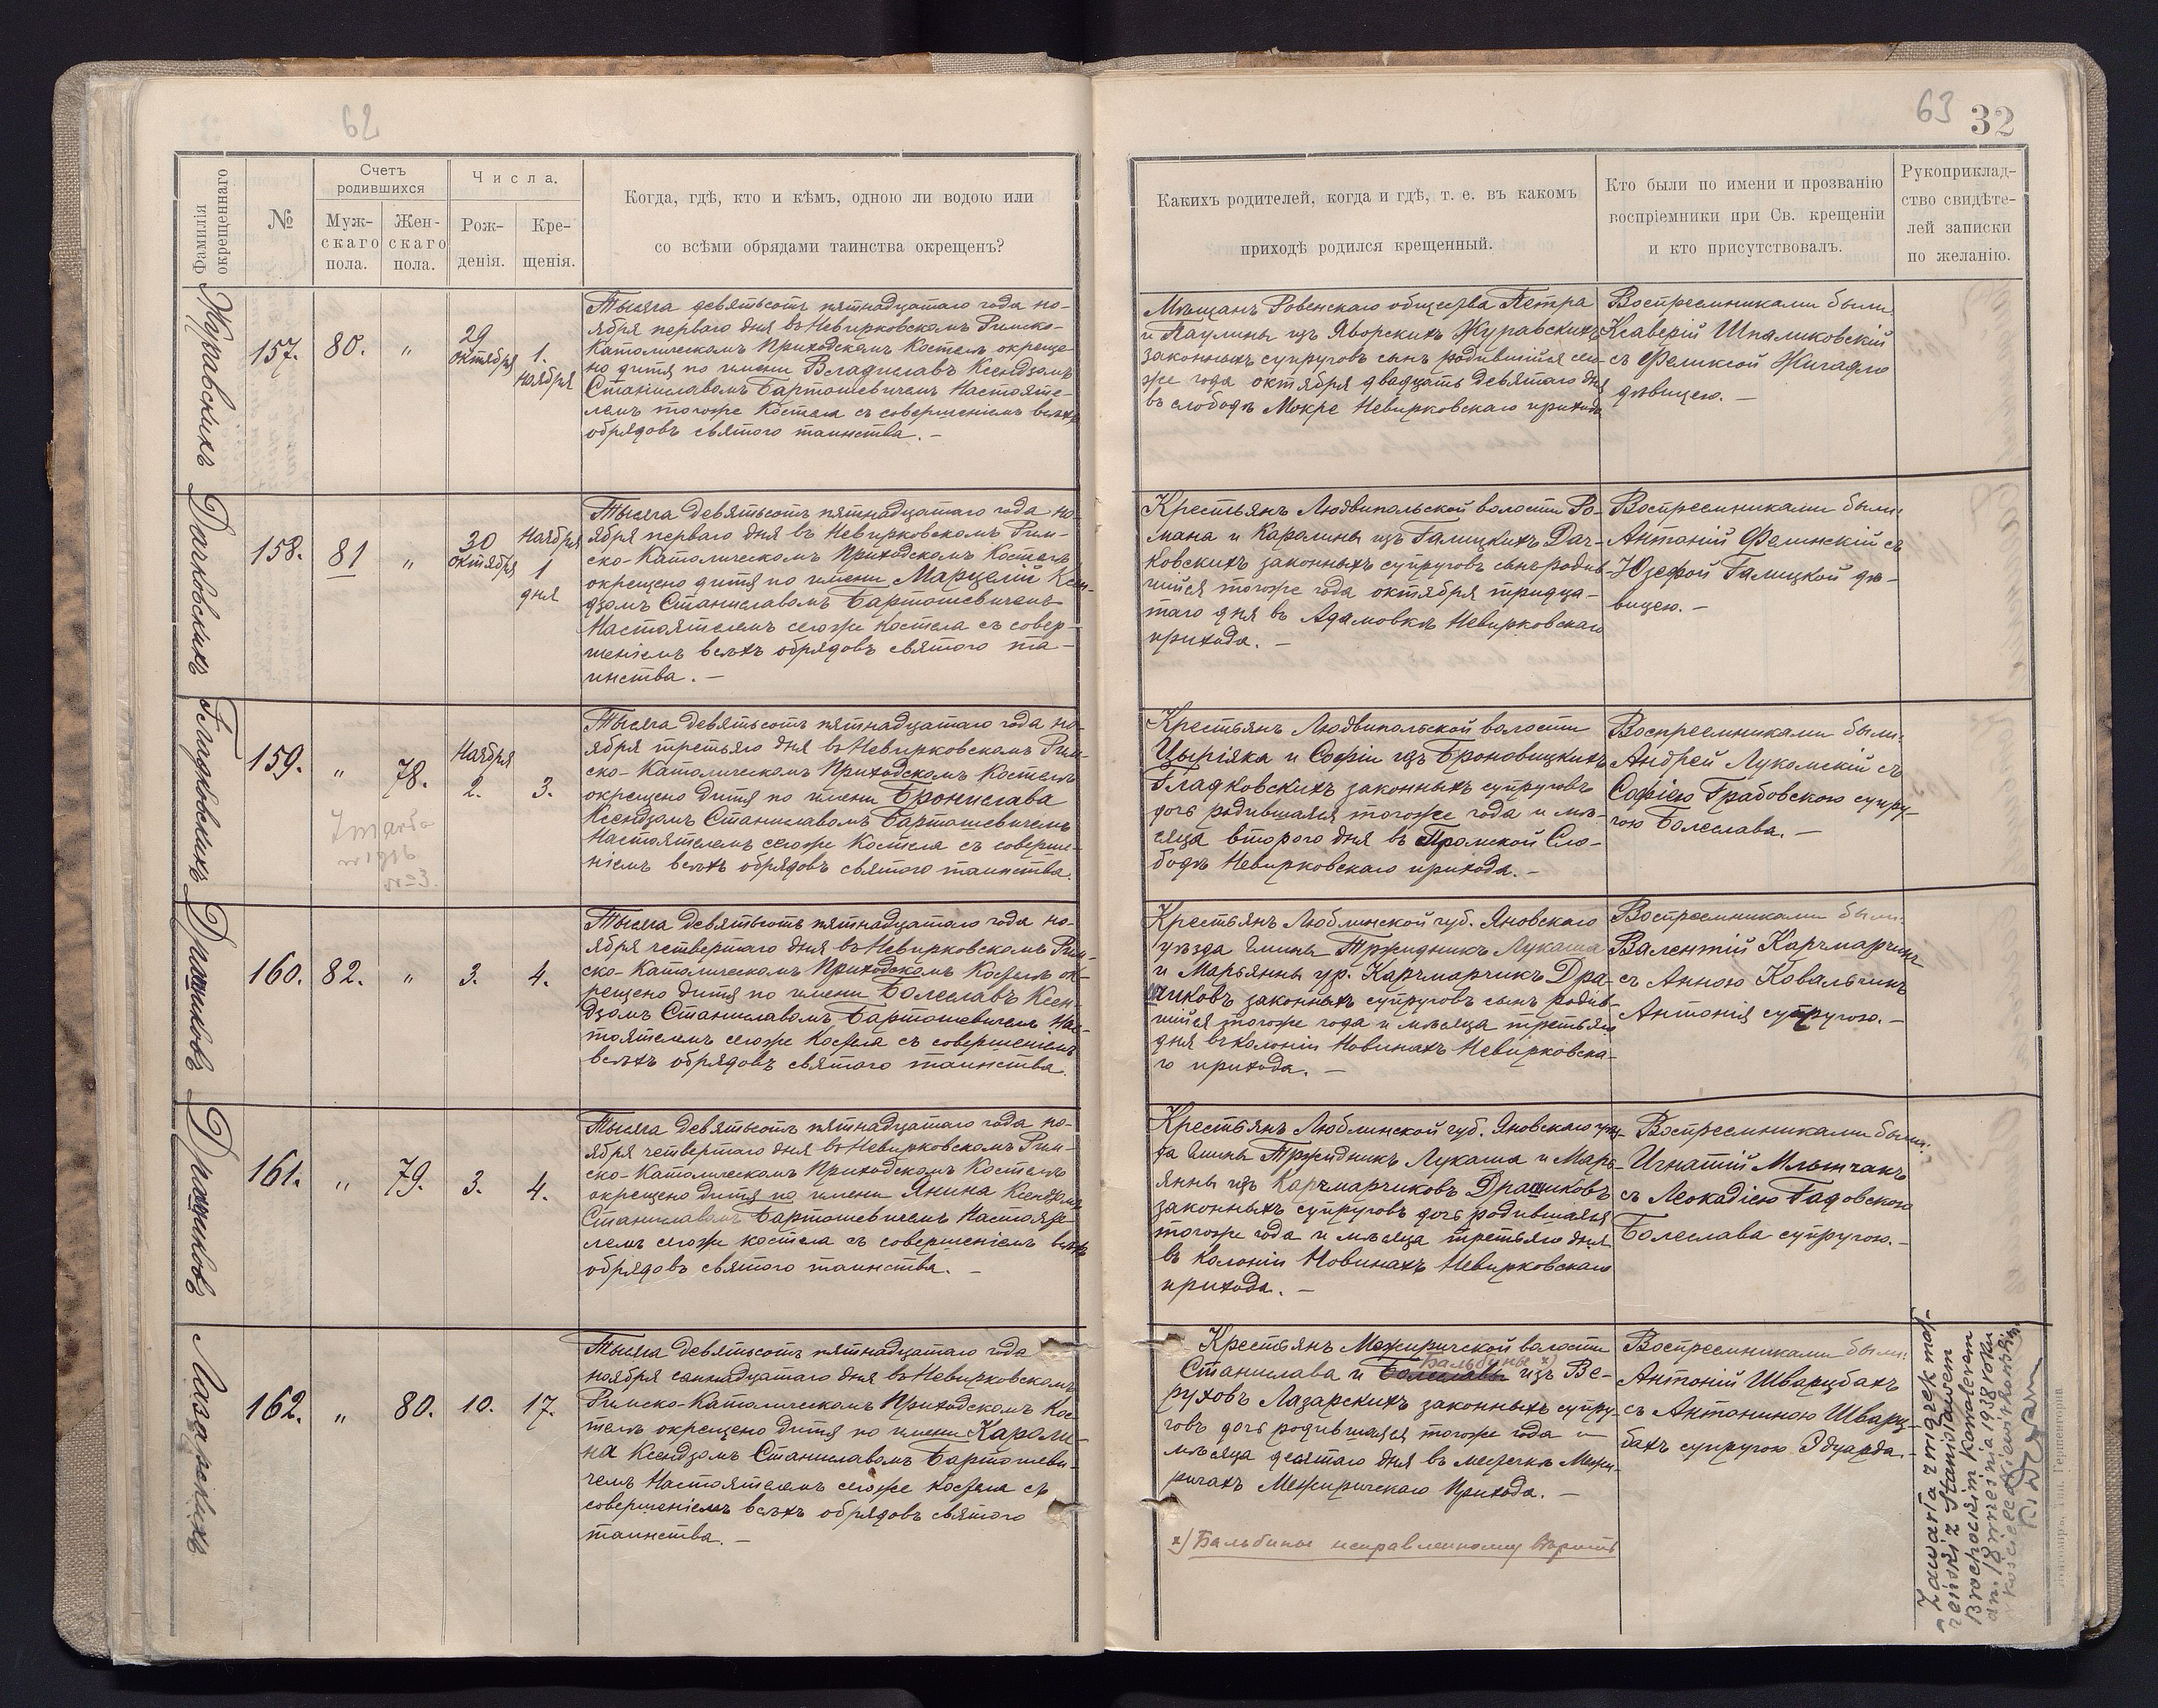 62
Фамилія
окрещеннаго
№
Счетъ
родившихся
Муж-
скаго
пола.
Жен-
скаго
пола.
Числа.
Рож-
денія.
Кре-
щенія.
Когда, гдѣ, кто и кѣмъ, одною ли водою или
со всѣми обрядами таинства окрещенъ?
Журавскихъ
157.
80.
"
29
октября
1.
ноября
Тысяча девятьсотъ пятнадцатаго года но-
ября перваго дня въ Невирковскомъ Римско-
Католическомъ Приходскомъ Костелѣ окреще-
но дитя по имени Владиславъ Ксендзомъ
Станиславомъ Бартошевичемъ Настояте-
лемъ тогоже Костела съ совершеніемъ всѣхъ
обрядовъ святого таинства. –
Дачковскихъ
158.
81
"
30
октября
Ноября
1
дня
Тысяча девятьсотъ пятнадцатаго года но-
ября перваго дня въ Невирковскомъ Рим-
ско-Католическомъ Приходскомъ Костелѣ
окрещено дитя по имени Марцелій Ксен-
дзомъ Станиславомъ Бартошевичемъ
Настоятелемъ сегоже Костела съ совер-
шеніемъ всѣхъ обрядовъ святого та-
инства. –
Гладковскихъ
159.
"
78.
Ноября
2.
3.
Zmarła
w 1916
№ 3.
Тысяча девятьсотъ пятнадцатаго года но-
ября третьяго дня въ Невирковскомъ Рим-
ско-Католическомъ Приходскомъ Костелѣ
окрещено дитя по имени Бронислава
Ксендзомъ Станиславомъ Бартошевичемъ
Настоятелемъ сегоже Костела съ соверше-
ніемъ всѣхъ обрядовъ святого таинства.
160.
82.
"
3.
4.
Тысяча девятьсотъ пятнадцатаго года но-
ября четвертаго дня въ Невирковскомъ Рим-
ско-Католическомъ Приходскомъ Костелѣ ок-
рещено дитя по имени Болеславъ Ксен-
дзомъ Станиславомъ Бартошевичемъ Нас-
тоятелемъ сегоже Костела съ совершеніемъ
всѣхъ обрядовъ святаго таинства.
161.
"
79.
3.
4.
Тысяча девятьсотъ пятнадцатаго года но-
ября четвертаго дня въ Невирковскомъ Рим-
ско-Католическомъ Приходскомъ Костелѣ
окрещено дитя по имени Янина Ксендзомъ
Станиславомъ Бартошевичемъ Настояте-
лемъ сегоже костела съ совершеніемъ всѣхъ
обрядовъ святого таинства. –
Лазарскихъ
162.
"
80.
10.
17.
Тысяча девятьсотъ пятнадцатаго года
ноября семнадцатаго дня въ Невирковскомъ
Римско-Католическомъ Приходскомъ Кос-
телѣ окрещено дитя по имени Кароли-
на Ксендзомъ Станиславомъ Бартошеви-
чемъ Настоятелемъ сегоже костела съ
совершеніемъ всѣхъ обрядовъ святого
таинства. –
63
32
Какихъ родителей, когда и гдѣ, т. е. въ какомъ
приходѣ родился крещенный.
Кто были по имени и прозванію
воспріемники при Св. крещеніи
и кто присутствовалъ.
Рукоприклад-
ство свидѣте-
лей записки
по желанію.
Мѣщанъ Ровенскаго общества Петра
и Паулины изъ Яворскихъ Журавскихъ
законныхъ супруговъ сынъ родившійся сего
же года октября двадцать девятаго дня
въ слободѣ Мокре Невирковскаго прихода
Воспреемниками были:
Ксаверій Шпаликовскій
съ Феликсой Жигадло
дѣвицею. –
Крестьянъ Людвипольской волости Ро-
мана и Каролины изъ Галицкихъ Дач-
ковскихъ законныхъ супруговъ сынъ родив-
шійся тогоже года октября тридца-
таго дня въ Адамовкѣ Невирковскаго
прихода. –
Воспреемниками были:
Антоній Фелинскій съ
Юзефой Галицкой дѣ-
вицею. –
Крестьянъ Людвипольской волости
Цыріяка и Софіи изъ Броновицкихъ
Гладковскихъ законныхъ супруговъ
дочь родившаяся тогоже года и мѣ-
сяца второго дня въ Слo-
бодѣ Невирковскаго прихода. –
Воспреемниками были:
Андрей Лукомскій съ
Софіею Грабовскою супру-
гою Болеслава. –
Крестьянъ Люблинской губ. Яновскаго
уѣзда Гмины Тржидникъ Лукаша
и Марьянны ур. Карчмарчикъ Дра-
чиковъ законныхъ супруговъ сынъ родив-
шійся тогоже года и мѣсяца третьяго
дня въ колоніи Новинахъ Невирковска-
го прихода. –
Воспреемниками были:
Валентій Карчмарчикъ
съ Анною Ковальчикъ
Антонія супругою. –
Крестьянъ Люблинской губ. Яновскаго уѣз-
да Гмины Тржидникъ Лукаша и Марь-
янны изъ Карчмарчиковъ
законныхъ супруговъ дочь родившаяся
тогоже года и мѣсяца третьяго дня
въ Колоніи Новинахъ Невирковскаго
прихода. –
Воспреемниками были:
Игнатій Млынчакъ
съ Леокадіею Гадовскою
Болеслава супругою. –
Крестьянъ Межиричской волости
Бальбины х)
Станислава и Болеславы изъ Ве-
руховъ Лазарскихъ законныхъ супру-
говъ дочь родившаяся тогоже года и
мѣсяца десятаго дня въ местечкѣ Межи-
ричахъ Межиричскаго Прихода. –
х) Бальбины исправленному вѣрить
Воспреемниками были:
Антоній Шварцбахъ
съ Антониною Шварц-
бахъ супругою Эдуарда. –
Zawarła związek mał-
żeński z Stanisławem
Brochockim kawalerem
dn. 18 września 1938 roku
w kościele